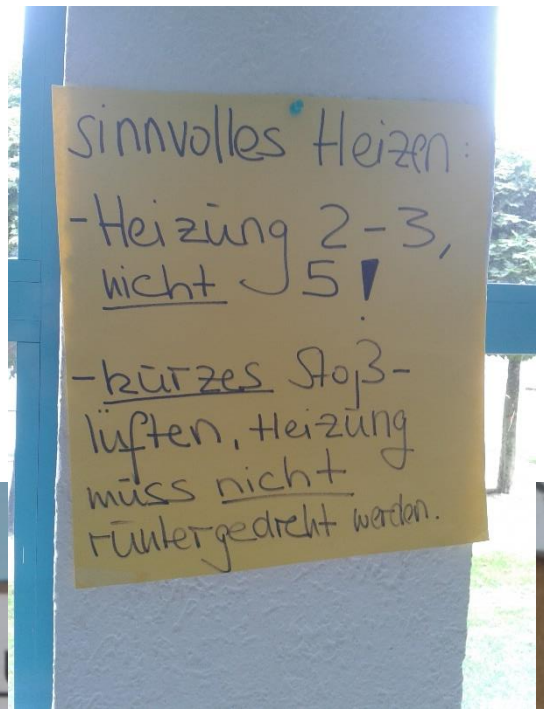 sinnvolles Heizen:
- Heizung 2-3,
nicht 5!
- kurzes Stoß-
lüften, Heizung
muss nicht
runtergedreht werden.